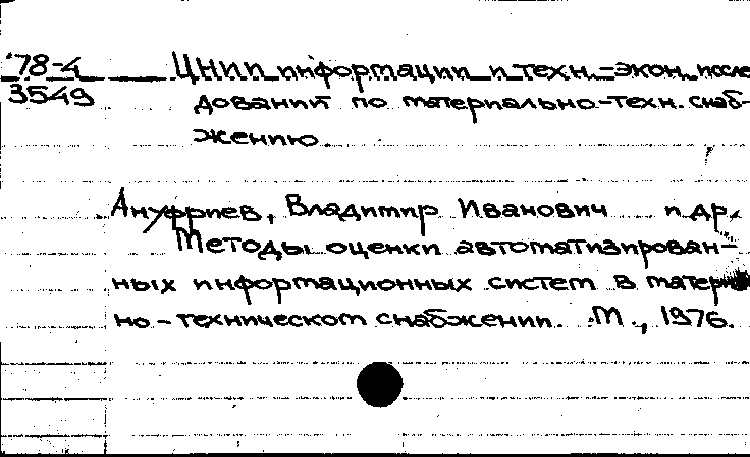 78-4 ЦНИИ информации и техн.-экон. иссле
3549 дований по материально-техн. снаб-
жению
Ануфриев, Владимир Иванович и др.
Методы оценки автоматизирован-
ных информационных систем в матери
но-техническом снабжении. М., 1976.